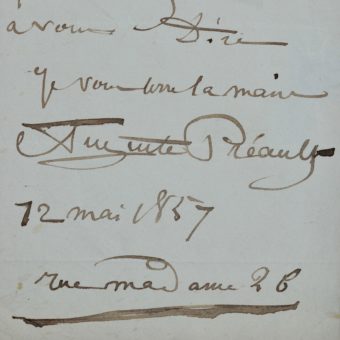 à vous Dire
je vous serre la main
Auguste Préault
12 mai 1857
rue madame 26